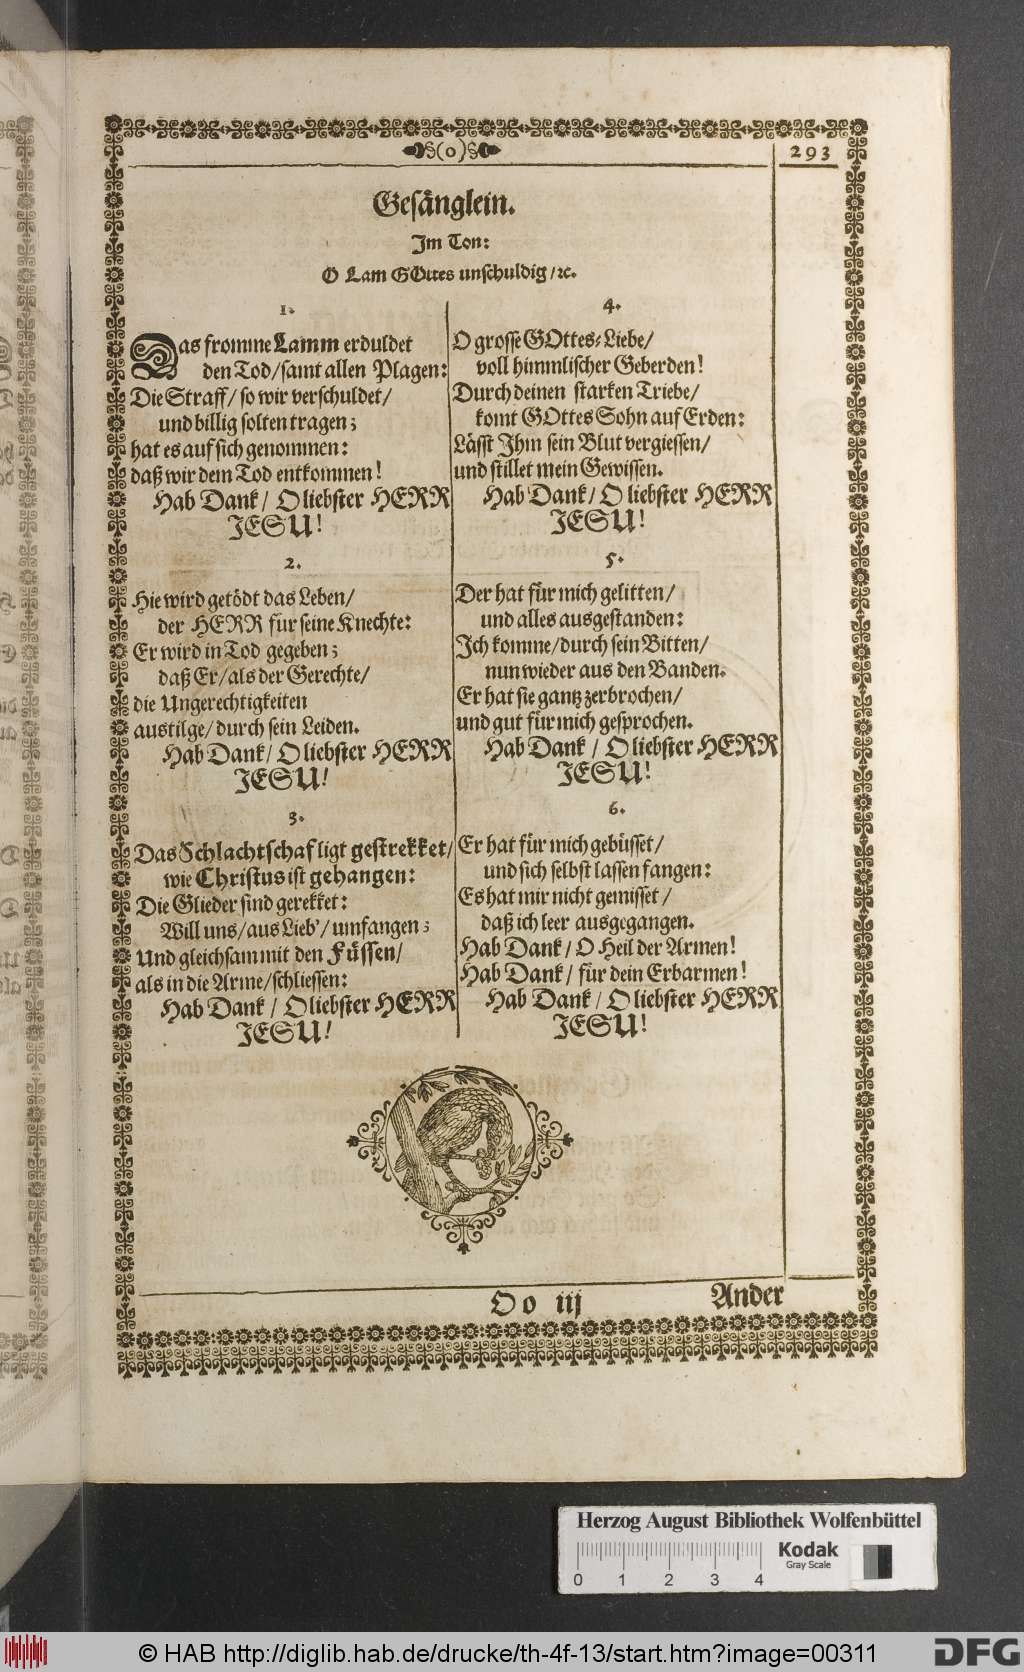 §(o)§
293
Gesänglein.
Im Ton:
O Lam GOttes unschuldig/ ꝛc.
1.
Das fromme Lamm erduldet
den Tod/ samt allen Plagen:
Die Straff/ so wir verschuldet/
und billig solten tragen;
hat es auf sich genommen:
daß wir dem Tod entkommen!
Hab Dank/ O liebster HERR
JESU!
2.
Hie wird getödt das Leben/
der HERR für seine Knechte:
Er wird in Tod gegeben;
daß Er/ als der Gerechte/
die Ungerechtigkeiten
austilge/ durch sein Leiden.
Hab Dank/ O liebster HERR
JESU!
3.
Das Schlachtschaf ligt gestrekket/
wie Christus ist gehangen:
Die Glieder sind gerekket:
Will uns/ aus Lieb'/ umfangen;
Und gleichsam mit den Füssen/
als in die Arme/ schliessen:
Hab Dank/ O liebster HERR
JESU!
4.
O grosse GOttes-Liebe/
voll himmlischer Geberden!
Durch deinen starken Triebe/
komt GOttes Sohn auf Erden:
Lässt Ihm sein Blut vergiessen/
und stillet mein Gewissen.
Hab Dank/ O liebster HERR
JESU!
5.
Der hat für mich gelitten/
und alles ausgestanden:
Ich komme/ durch sein Bitten/
nun wieder aus den Banden.
Er hat sie gantz zerbrochen/
und gut für mich gesprochen.
Hab Dank/ O liebster HERR
JESU!
6.
Er hat für mich gebüsset/
und sich selbst lassen fangen:
Es hat mir nicht gemisset/
daß ich leer ausgegangen.
Hab Dank/ O Heil der Armen!
Hab Dank/ für dein Erbarmen!
Hab Dank/ O liebster HERR
JESU!
Oo iij
Ander
Herzog August Bibliothek Wolfenbüttel
Kodak
Gray Scale
0 1 2 3 4
© HAB http://diglib.hab.de/drucke/th-4f-13/start.htm?image=00311
DFG